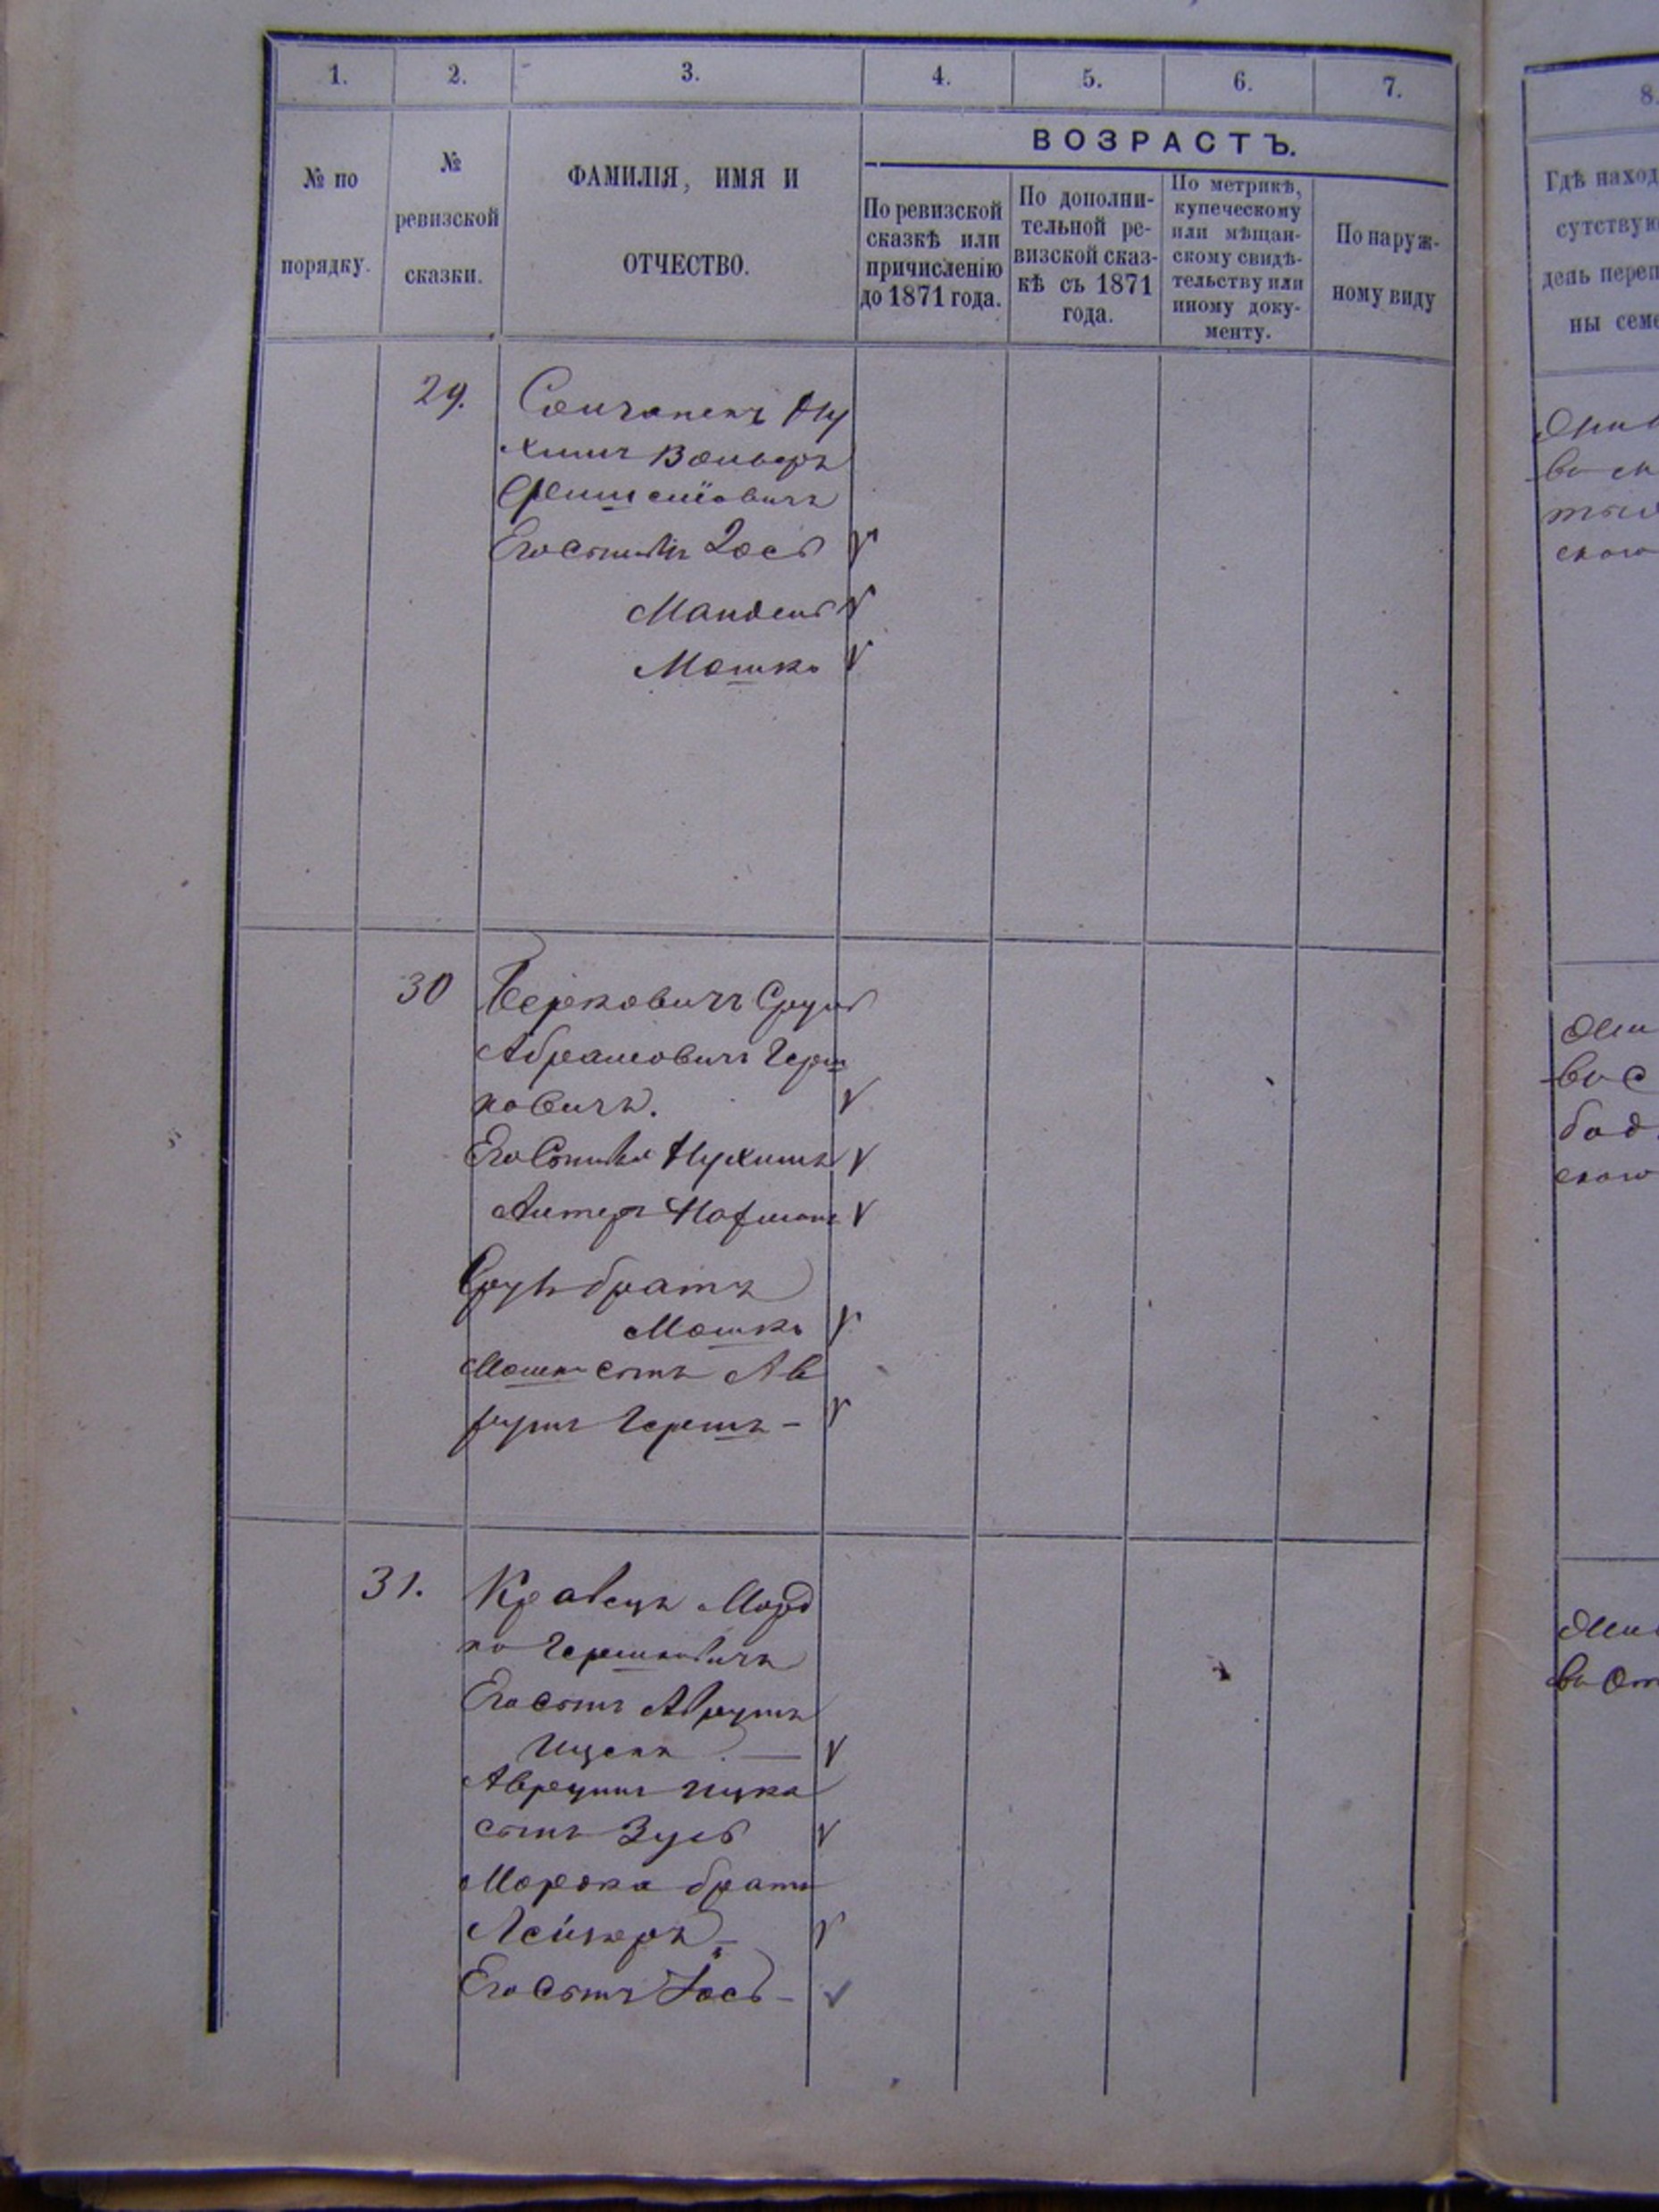 1. 2. 3. 4. 5. 6. 7.
8.
№ по
порядку.
№
ревизской
сказки.
ФАМИЛІЯ, ИМЯ И
ОТЧЕСТВО.
ВОЗРАСТЪ.
По ревизской
сказкѣ или
причисленію
до 1871 года.
По дополни-
тельной ре-
визской сказ-
кѣ съ 1871
года.
По метрикѣ,
купеческому
или мѣщан-
скому свидѣ-
тельству или
иному доку-
менту.
По наруж-
ному виду
Гдѣ наход
сутствую
день переп
ны семе
29. Ну
химъ Вольфъ
Его сыновья Іось
Мандель
Мошко
30 Берковичъ Сруль
Абрамовичъ Герш
ковичъ.
Его Сыновья Нухимъ
Антеръ Нафтанъ
Сруля братъ
Мошко
Мошки сынъ Ав
румъ Гершъ –
31. Кравецъ Морд
ко Гершковичъ
Его сынъ Аврумъ
Ицекъ —
Аврума Ицка
сынъ Зусь
Мордка братъ
Лейзеръ –
Его сынъ Іось –